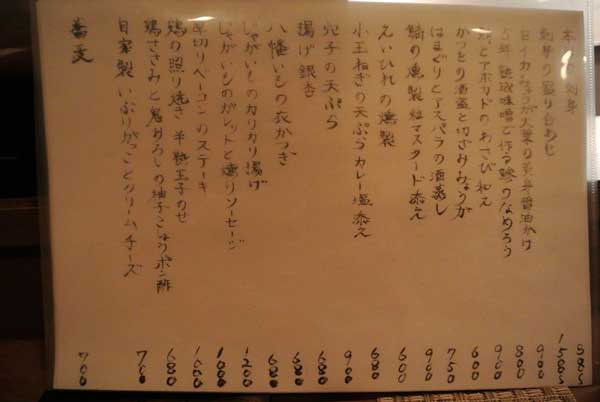 本 刺身 980~
刺身の盛り合わせ 1580~
白イカみょうが大葉の 醤油かけ 900
5年熟成味噌で作る鯵のなめろう 800
とアボカドのわさび和え 900
かつをの酒盗と切ざみみょうが 600
はまぐりとアスパラの酒蒸し 750
鯖の燻製 粒マスタード添え 900
えいひれの燻製 600
小玉ねぎの天ぷらカレー塩添え 680
穴子の天ぷら 900
揚げ銀杏 680
八幡いもの衣かつぎ 680
じゃがいものカリカリ揚げ 680
じゃがいものガレットと燻りソーセージ 1200
厚切りベーコンのステーキ 1000
鶏の照り焼き 半熟玉子のせ 1000
鶏ささみと鬼おろしの柚子こしょうポン酢 680
自家製いぶりがっことクリームチーズ 700
蕎麦 700